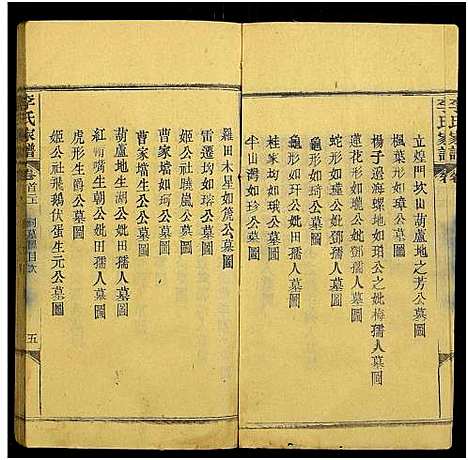 李氏家譜
立煌門坎山葫蘆地之芳公墓圖
楓葉形如璋公墓圖
楊子過海螺地如珀公之妣梅孺人墓圖
蓮花形如瓏公妣鄧孺人墓圖
蛇形如璹公妣鄧孺人墓圖
龜形如琦公墓圖
龜形如玗公墓圖
桂家灣如珍公墓圖
半山灣如公墓圖
羅田木星如公墓圖
雷灣均如瑔公墓圖
姬公社曉嵐公墓圖
曹家塆如琦公墓圖
曹家壋生如公墓圖
葫蘆地生朝公妣田孺人墓圖
紅朝主公妣田孺人墓圖
虎形生爵公墓圖
姬公社飛鵝伏蛋生元公墓圖
李氏家譜
卷首二
目次
五